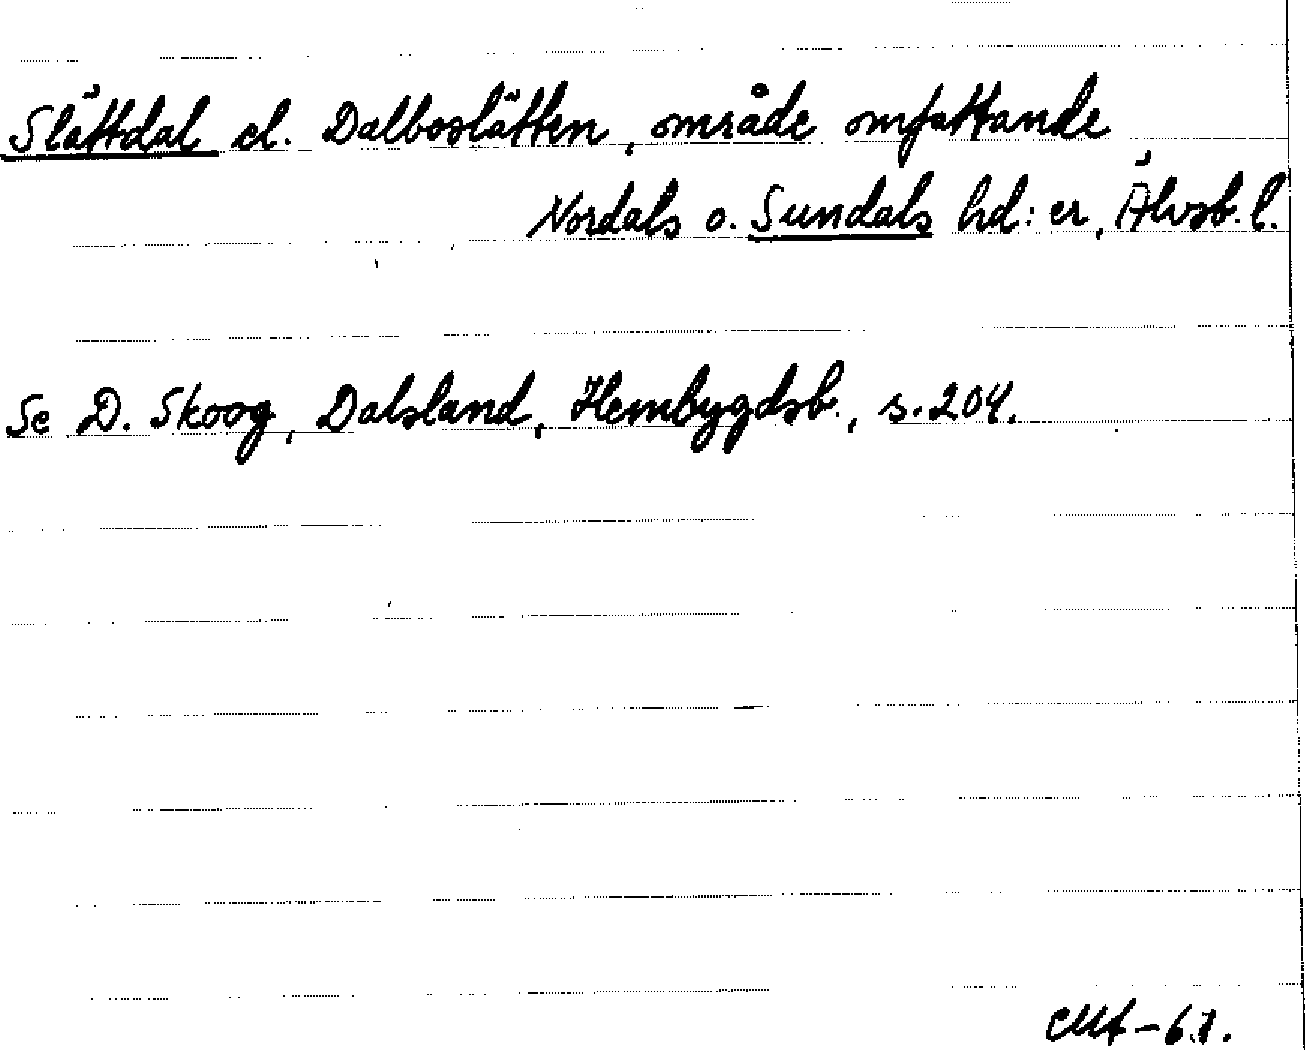 Slättdal el. Dalboslätten, område omfattande
Nordals o. Sundals hd:er, Älvsb. l.
Se D. Skoog, Dalsland, Hembygdsb., s. 204.